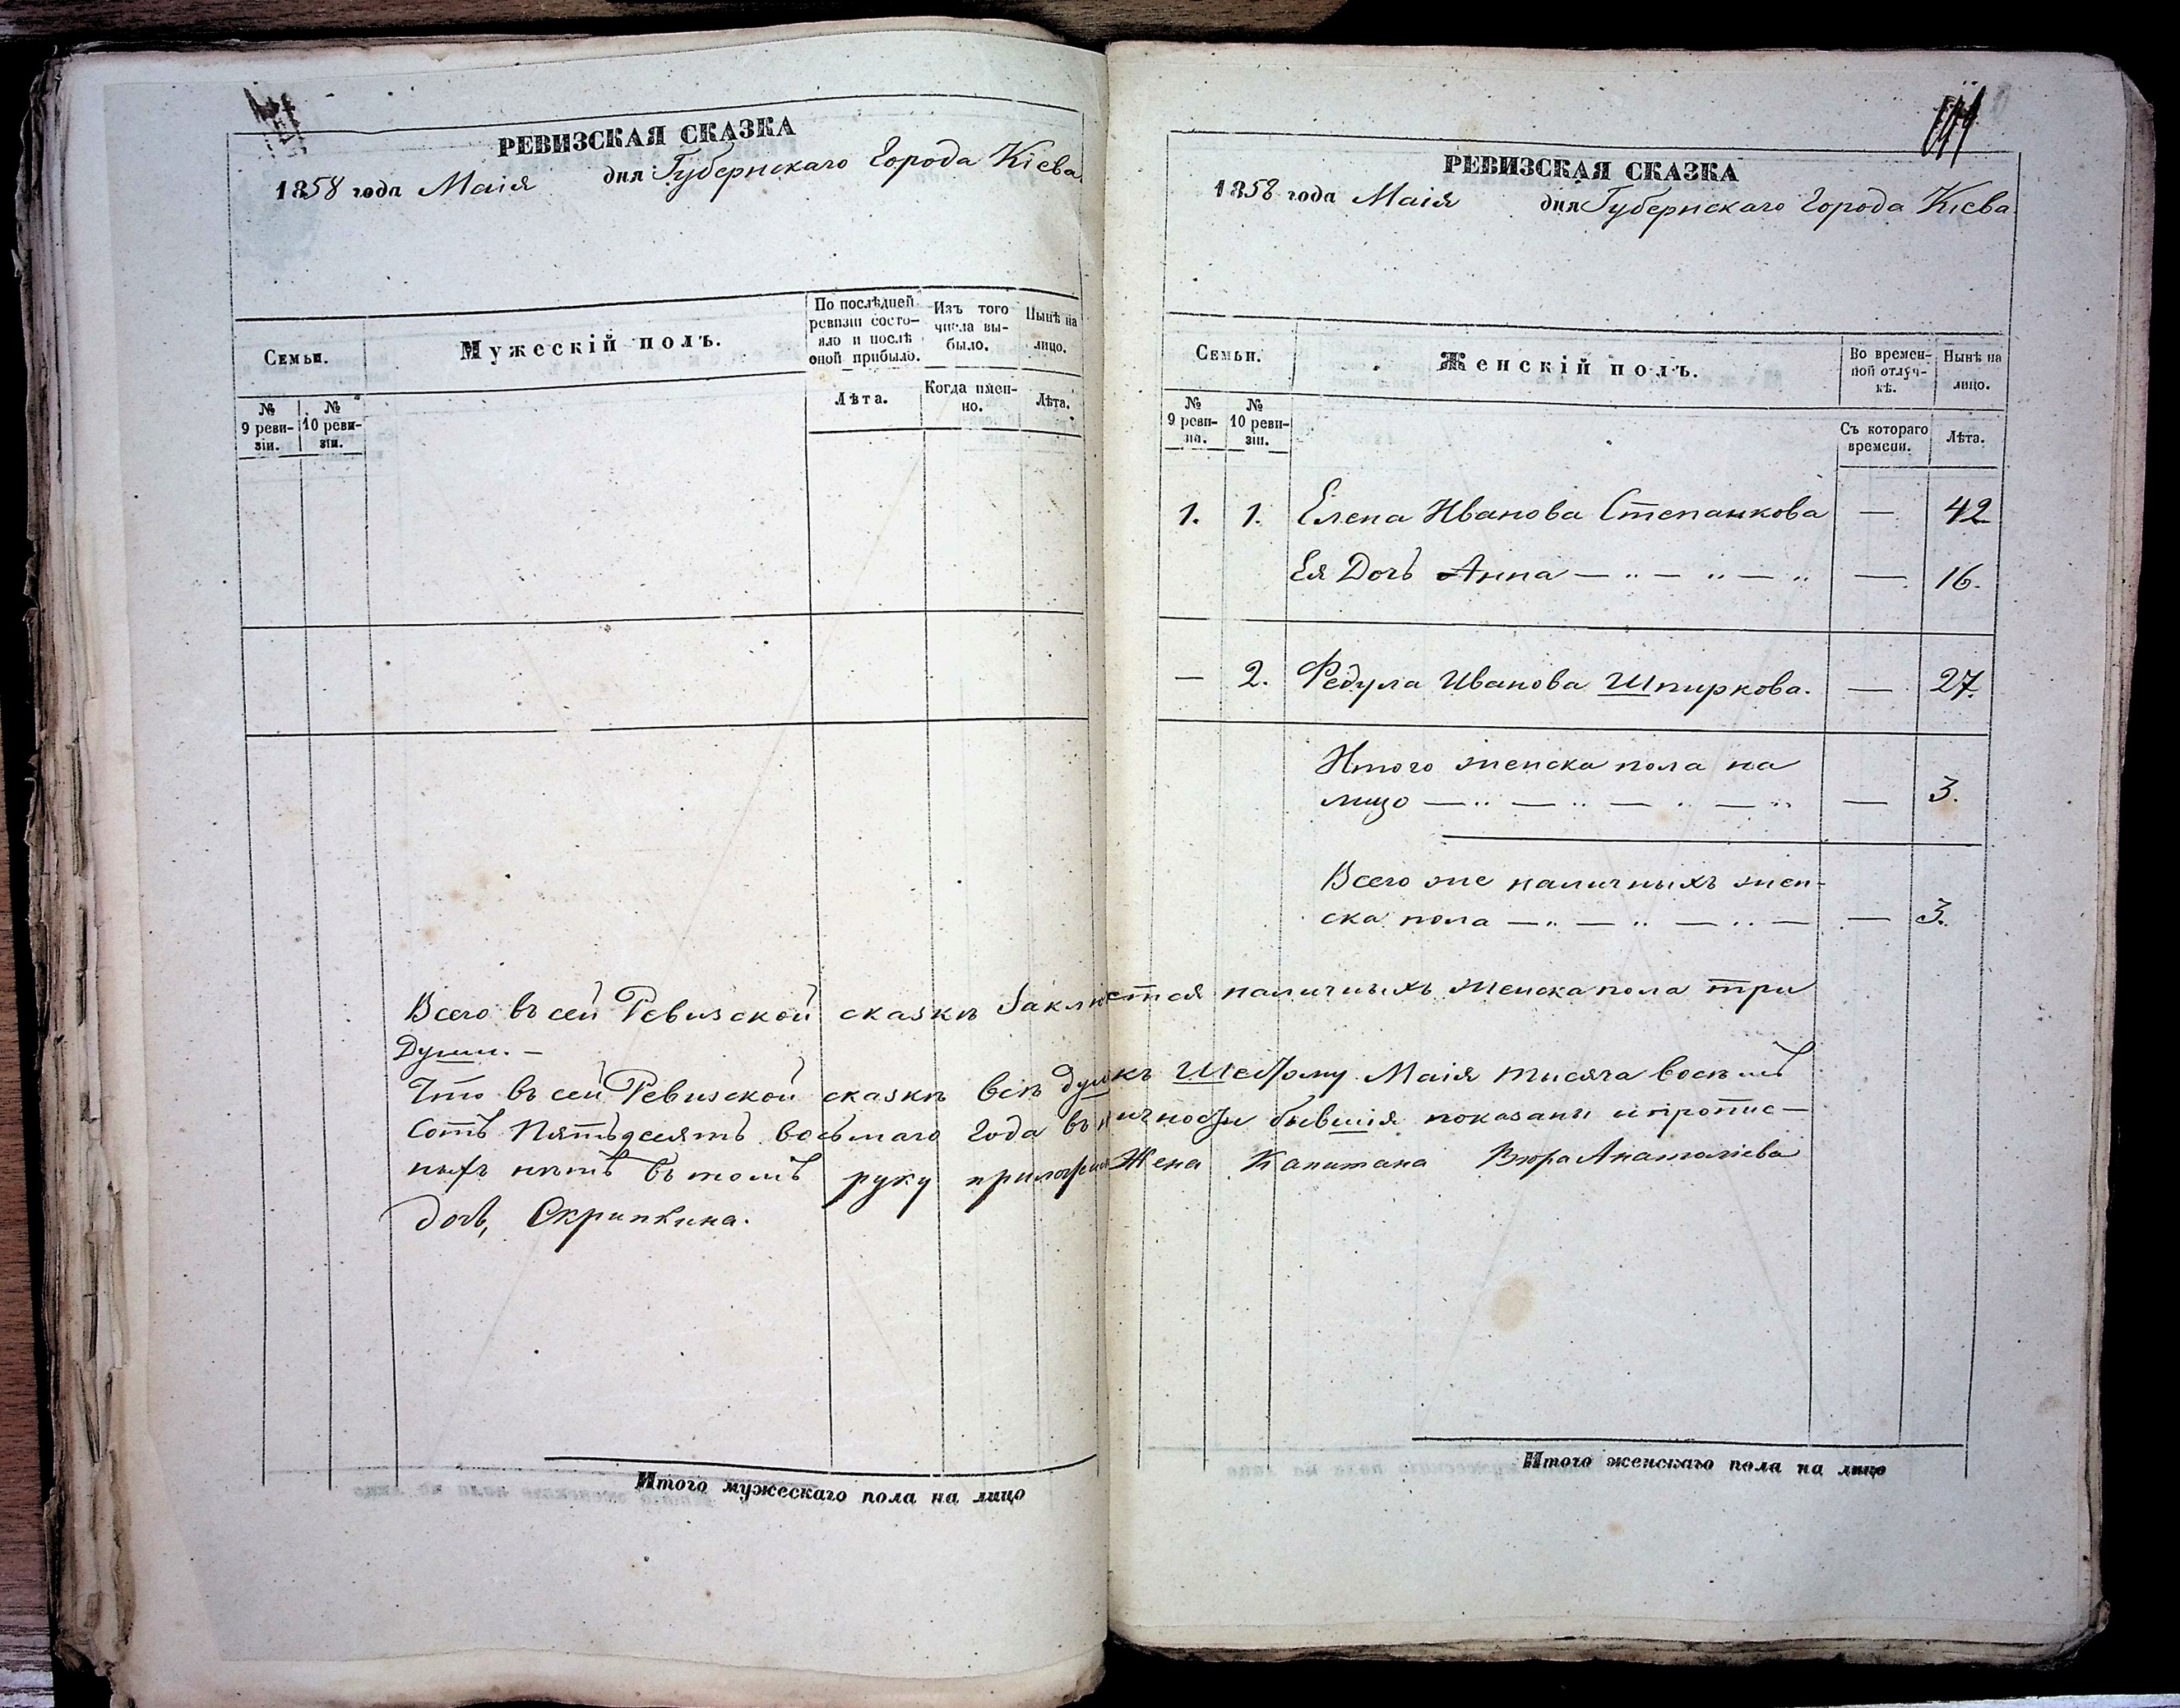 РЕВИЗСКАЯ СКАЗКА
1858 года Маія дня Губернскаго Города Кіева
Семьи.
Мужескій полъ.
По послѣдней ревизіи состо-
яло и послѣ
оной прибыло.
Изъ того
числа вы-
было.
Нынѣ на
лицо.
№
9 реви-
зіи.
№
10 реви-
зіи.
Лѣта.
Когда имен-
но.
Лѣта.
Всего въ сей Ревизской сказкѣ
Души. —
Что въ сей Ревизской сказкѣ всѣ
Сотъ Пятьдесятъ восьмаго Года въ
нѣтъ въ томъ руку
дочь, Скрипкина.
Итого мужескаго пола на лицо
РЕВИЗСКАЯ СКАЗКА
1858 года Маія дня Губернскаго Города Кіева
Семьи.
Женскій полъ.
Во времен-
ной отлуч-
кѣ.
Нынѣ на
лицо.
№
9 реви-
зіи.
№
10 реви-
зіи.
Съ котораго
времени.
Лѣта.
1. 1. Елена Иванова Степанкова — 42
Ея Дочь Анна — „ — „ — „ — 16.
— 2. Федула Иванова Шпиркова. — 27.
Итого женска пола на
лицо — „ — „ — „ — „ — 3.
Всего же наличныхъ жен-
ска пола — „ — „ — „ — — 3.
наличныхъ женска пола три
Маія тысяча восемь
бывшія показаны и прописа-
Жена Капитана Анатоліева
Итого женскаго пола на лицо